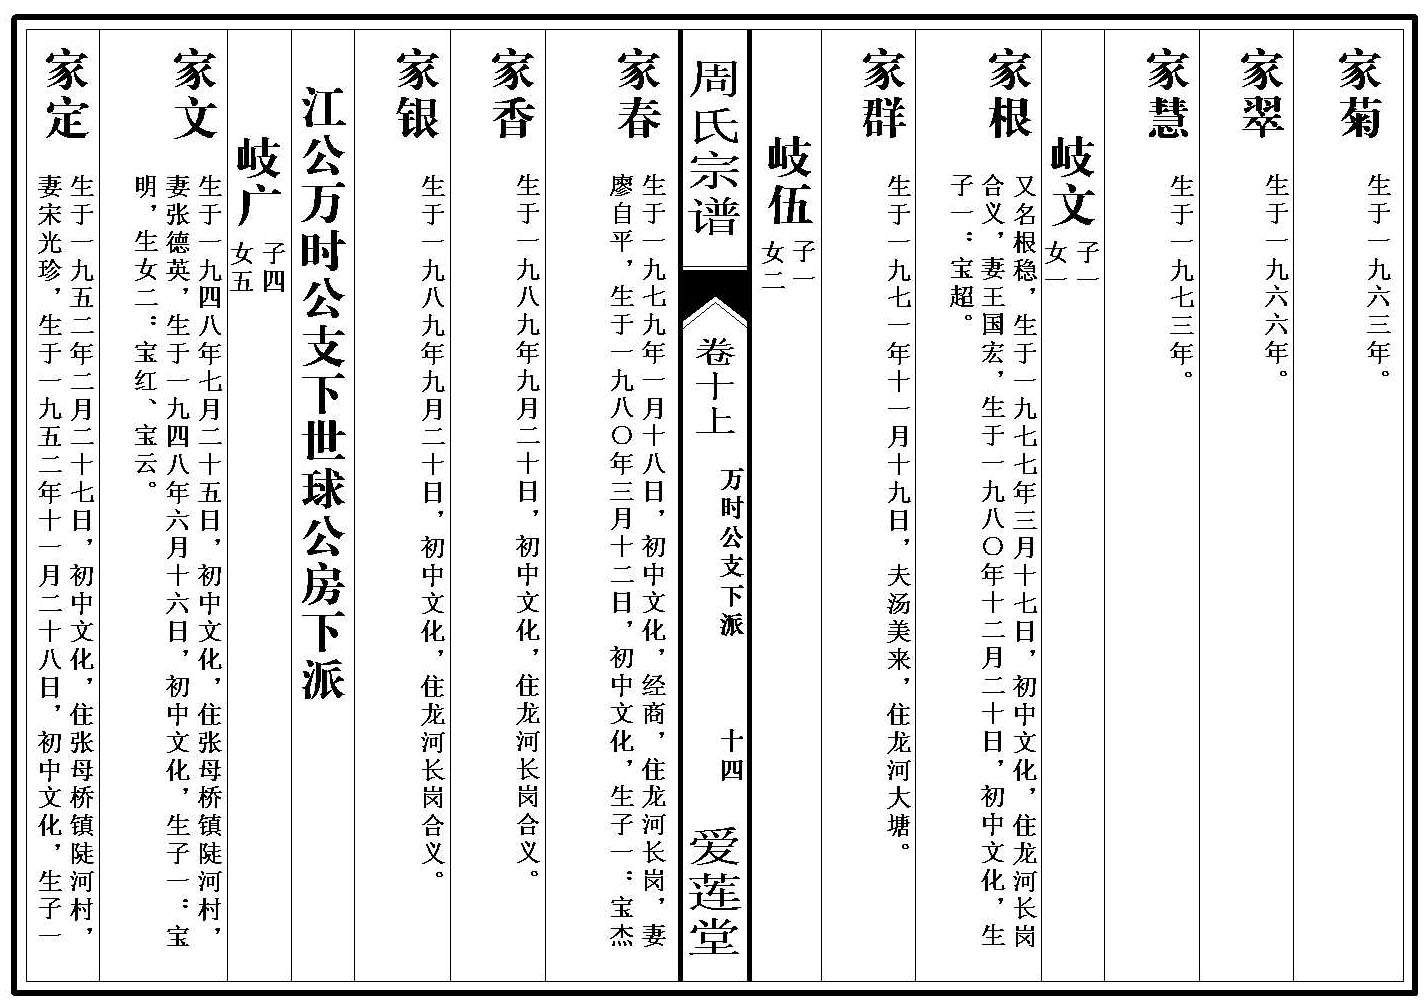 家菊
生于一九六三年。
家翠
生于一九六六年。
家慧
生于一九七三年。
岐文
子一
女一
家根
又名根稳，生于一九七七年三月十七日，初中文化，住龙河长岗
合义，妻王国宏，生于一九八〇年十二月二十日，初中文化，生
子一：宝超。
家群
生于一九七一年十一月十九日，夫汤美来，住龙河大塘。
岐伍
子一
女二
周氏宗谱
卷十上
万时公支下派
十四
爱莲堂
家春
生于一九七九年一月十八日，初中文化，经商，住龙河长岗，妻
廖自平，生于一九八〇年三月十二日，初中文化，生子一：宝杰
家香
生于一九八九年九月二十日，初中文化，住龙河长岗合义。
家银
生于一九八九年九月二十日，初中文化，住龙河长岗合义。
江公万时公支下世球公房下派
岐广
子四
女五
家文
生于一九四八年七月二十五日，初中文化，住张母桥镇陡河村，
妻张德英，生于一九四八年六月十六日，初中文化，生子一：宝
明，生女二：宝红、宝云。
家定
生于一九五二年二月二十七日，初中文化，住张母桥镇陡河村，
妻宋光珍，生于一九五二年十一月二十八日，初中文化，生子一